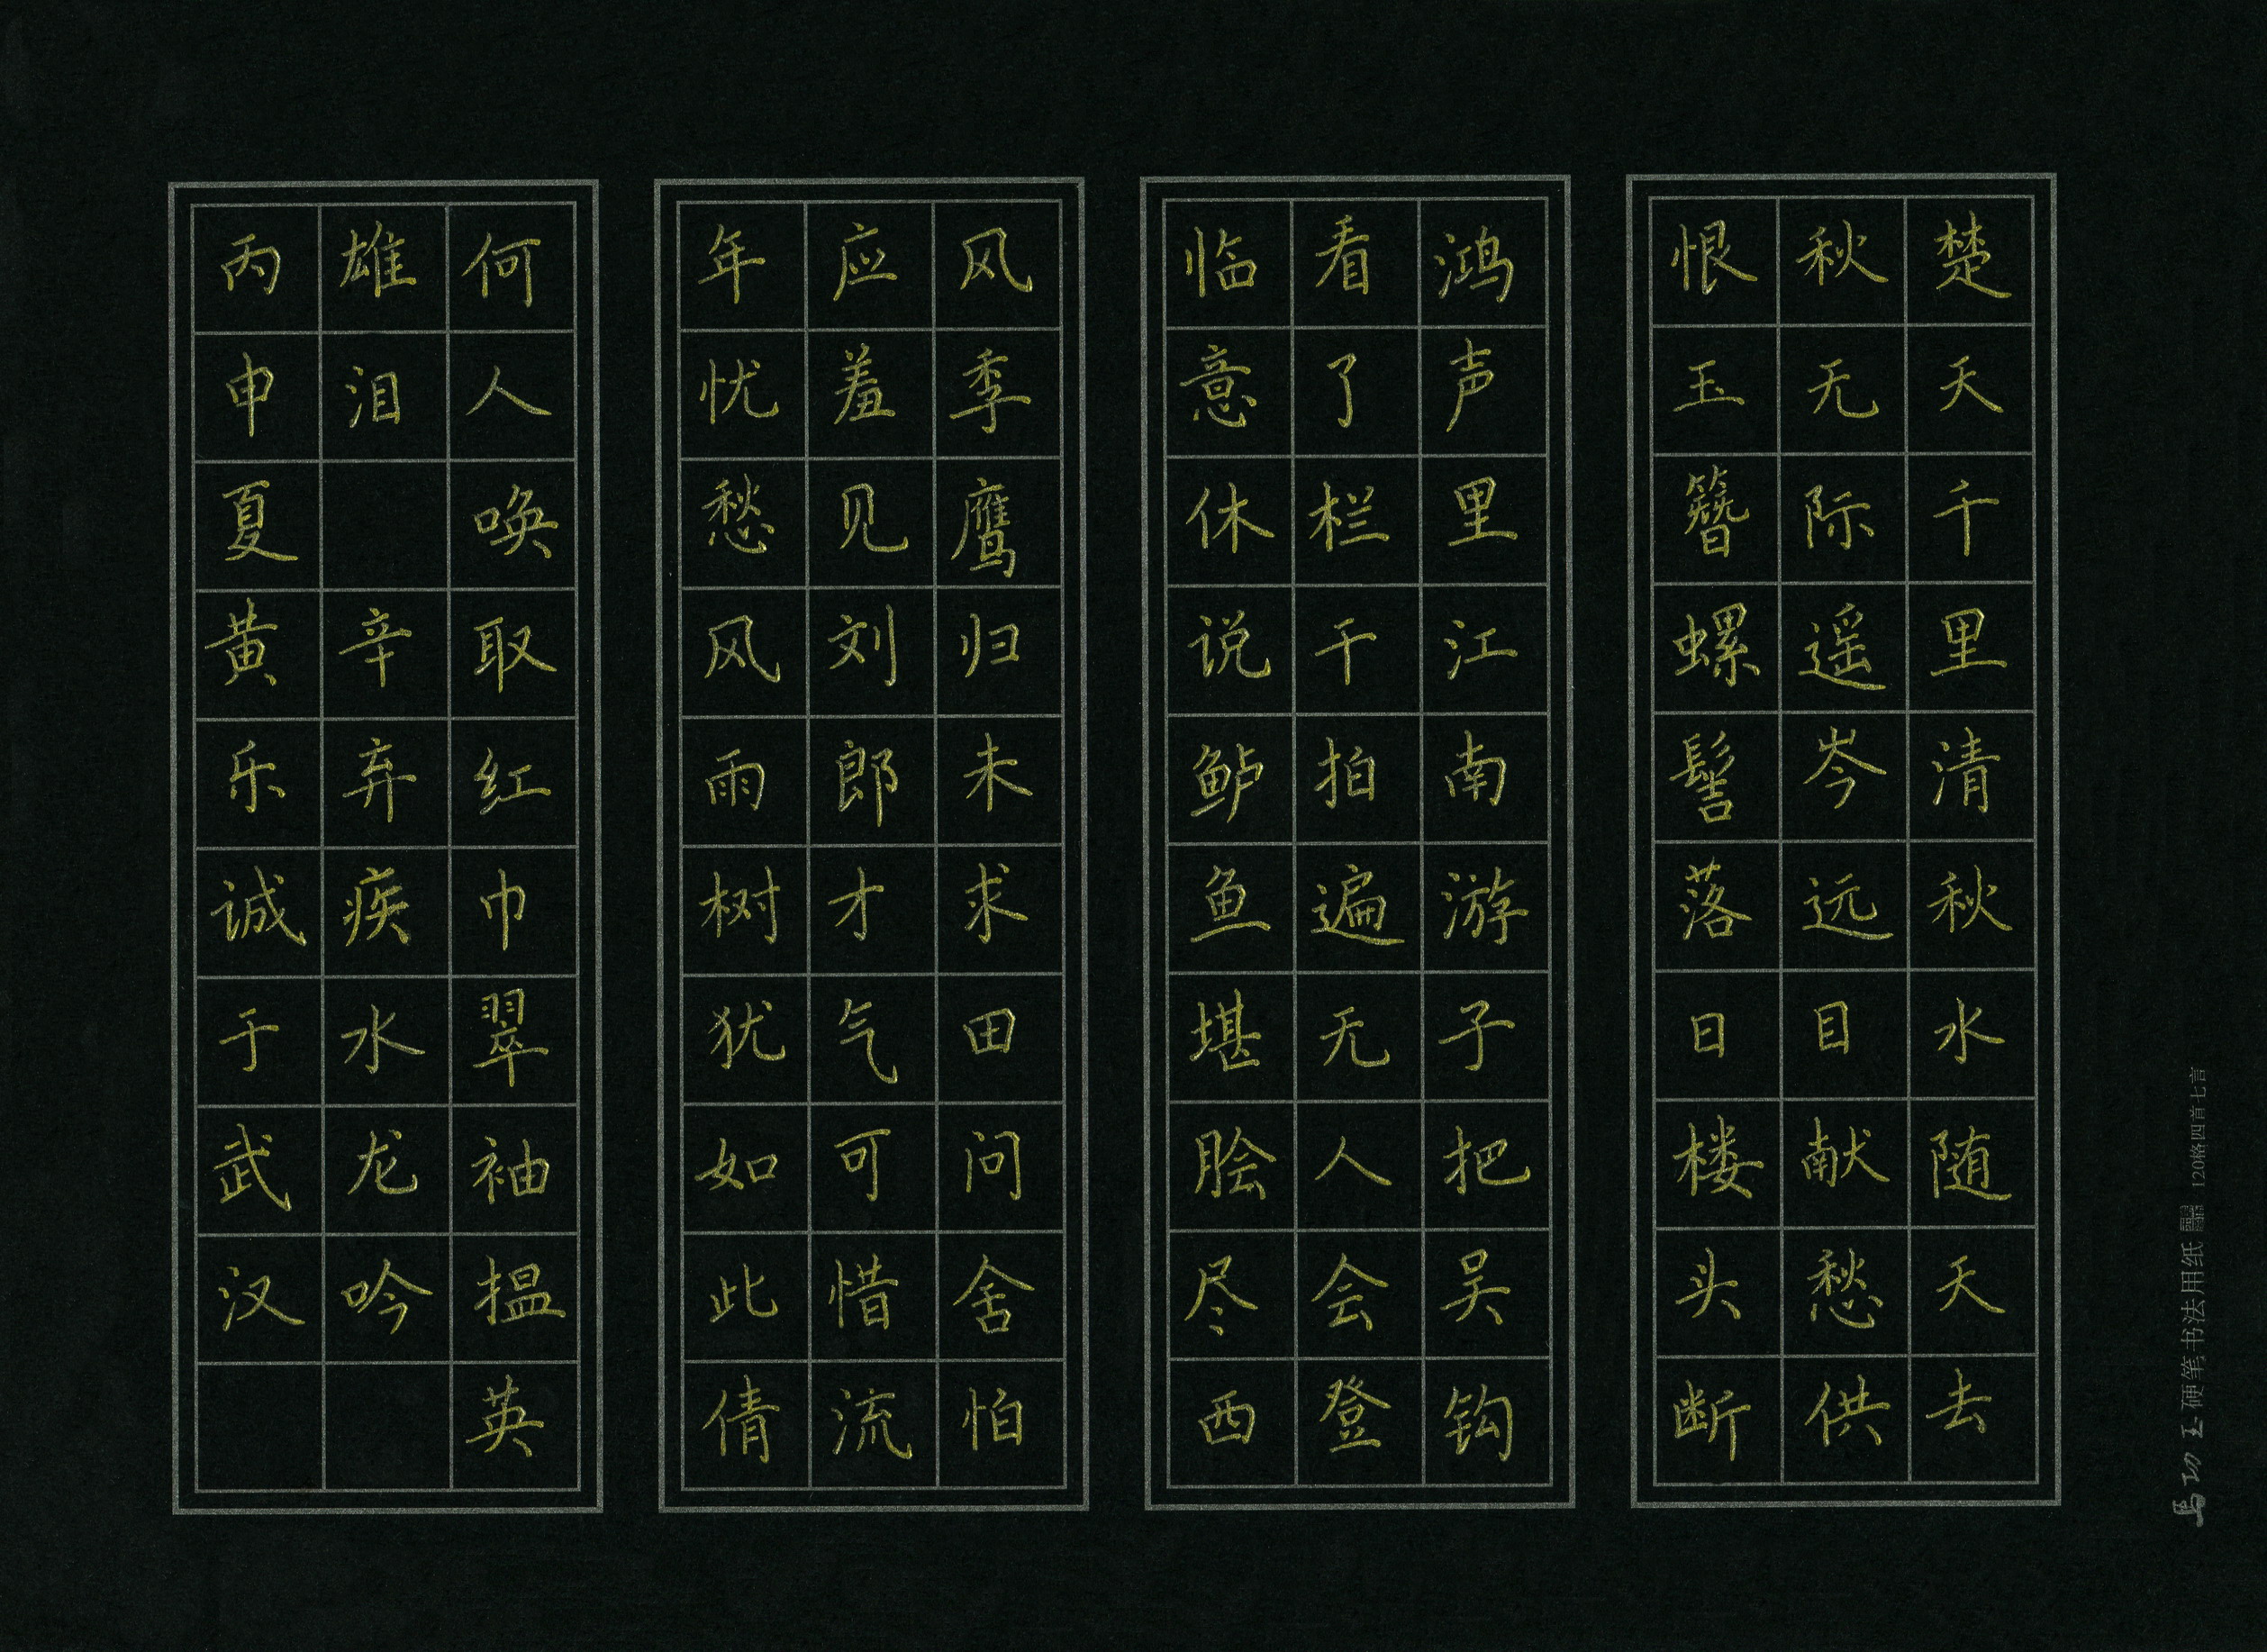 楚天千里清秋水随天去
秋无际遥岑远目献愁供
恨玉簪螺髻落日楼头断
鸿声里江南游子把吴钩
看了栏干拍遍无人会登
临意休说鲈鱼堪脍尽西
风季鹰归未求田问舍怕
应羞见刘郎才气可惜流
年忧愁风雨树犹如此倩
何人唤取红巾翠袖揾英
雄泪 辛弃疾水龙吟
丙申夏黄乐诚于武汉
硬笔书法用纸 120格四首七言